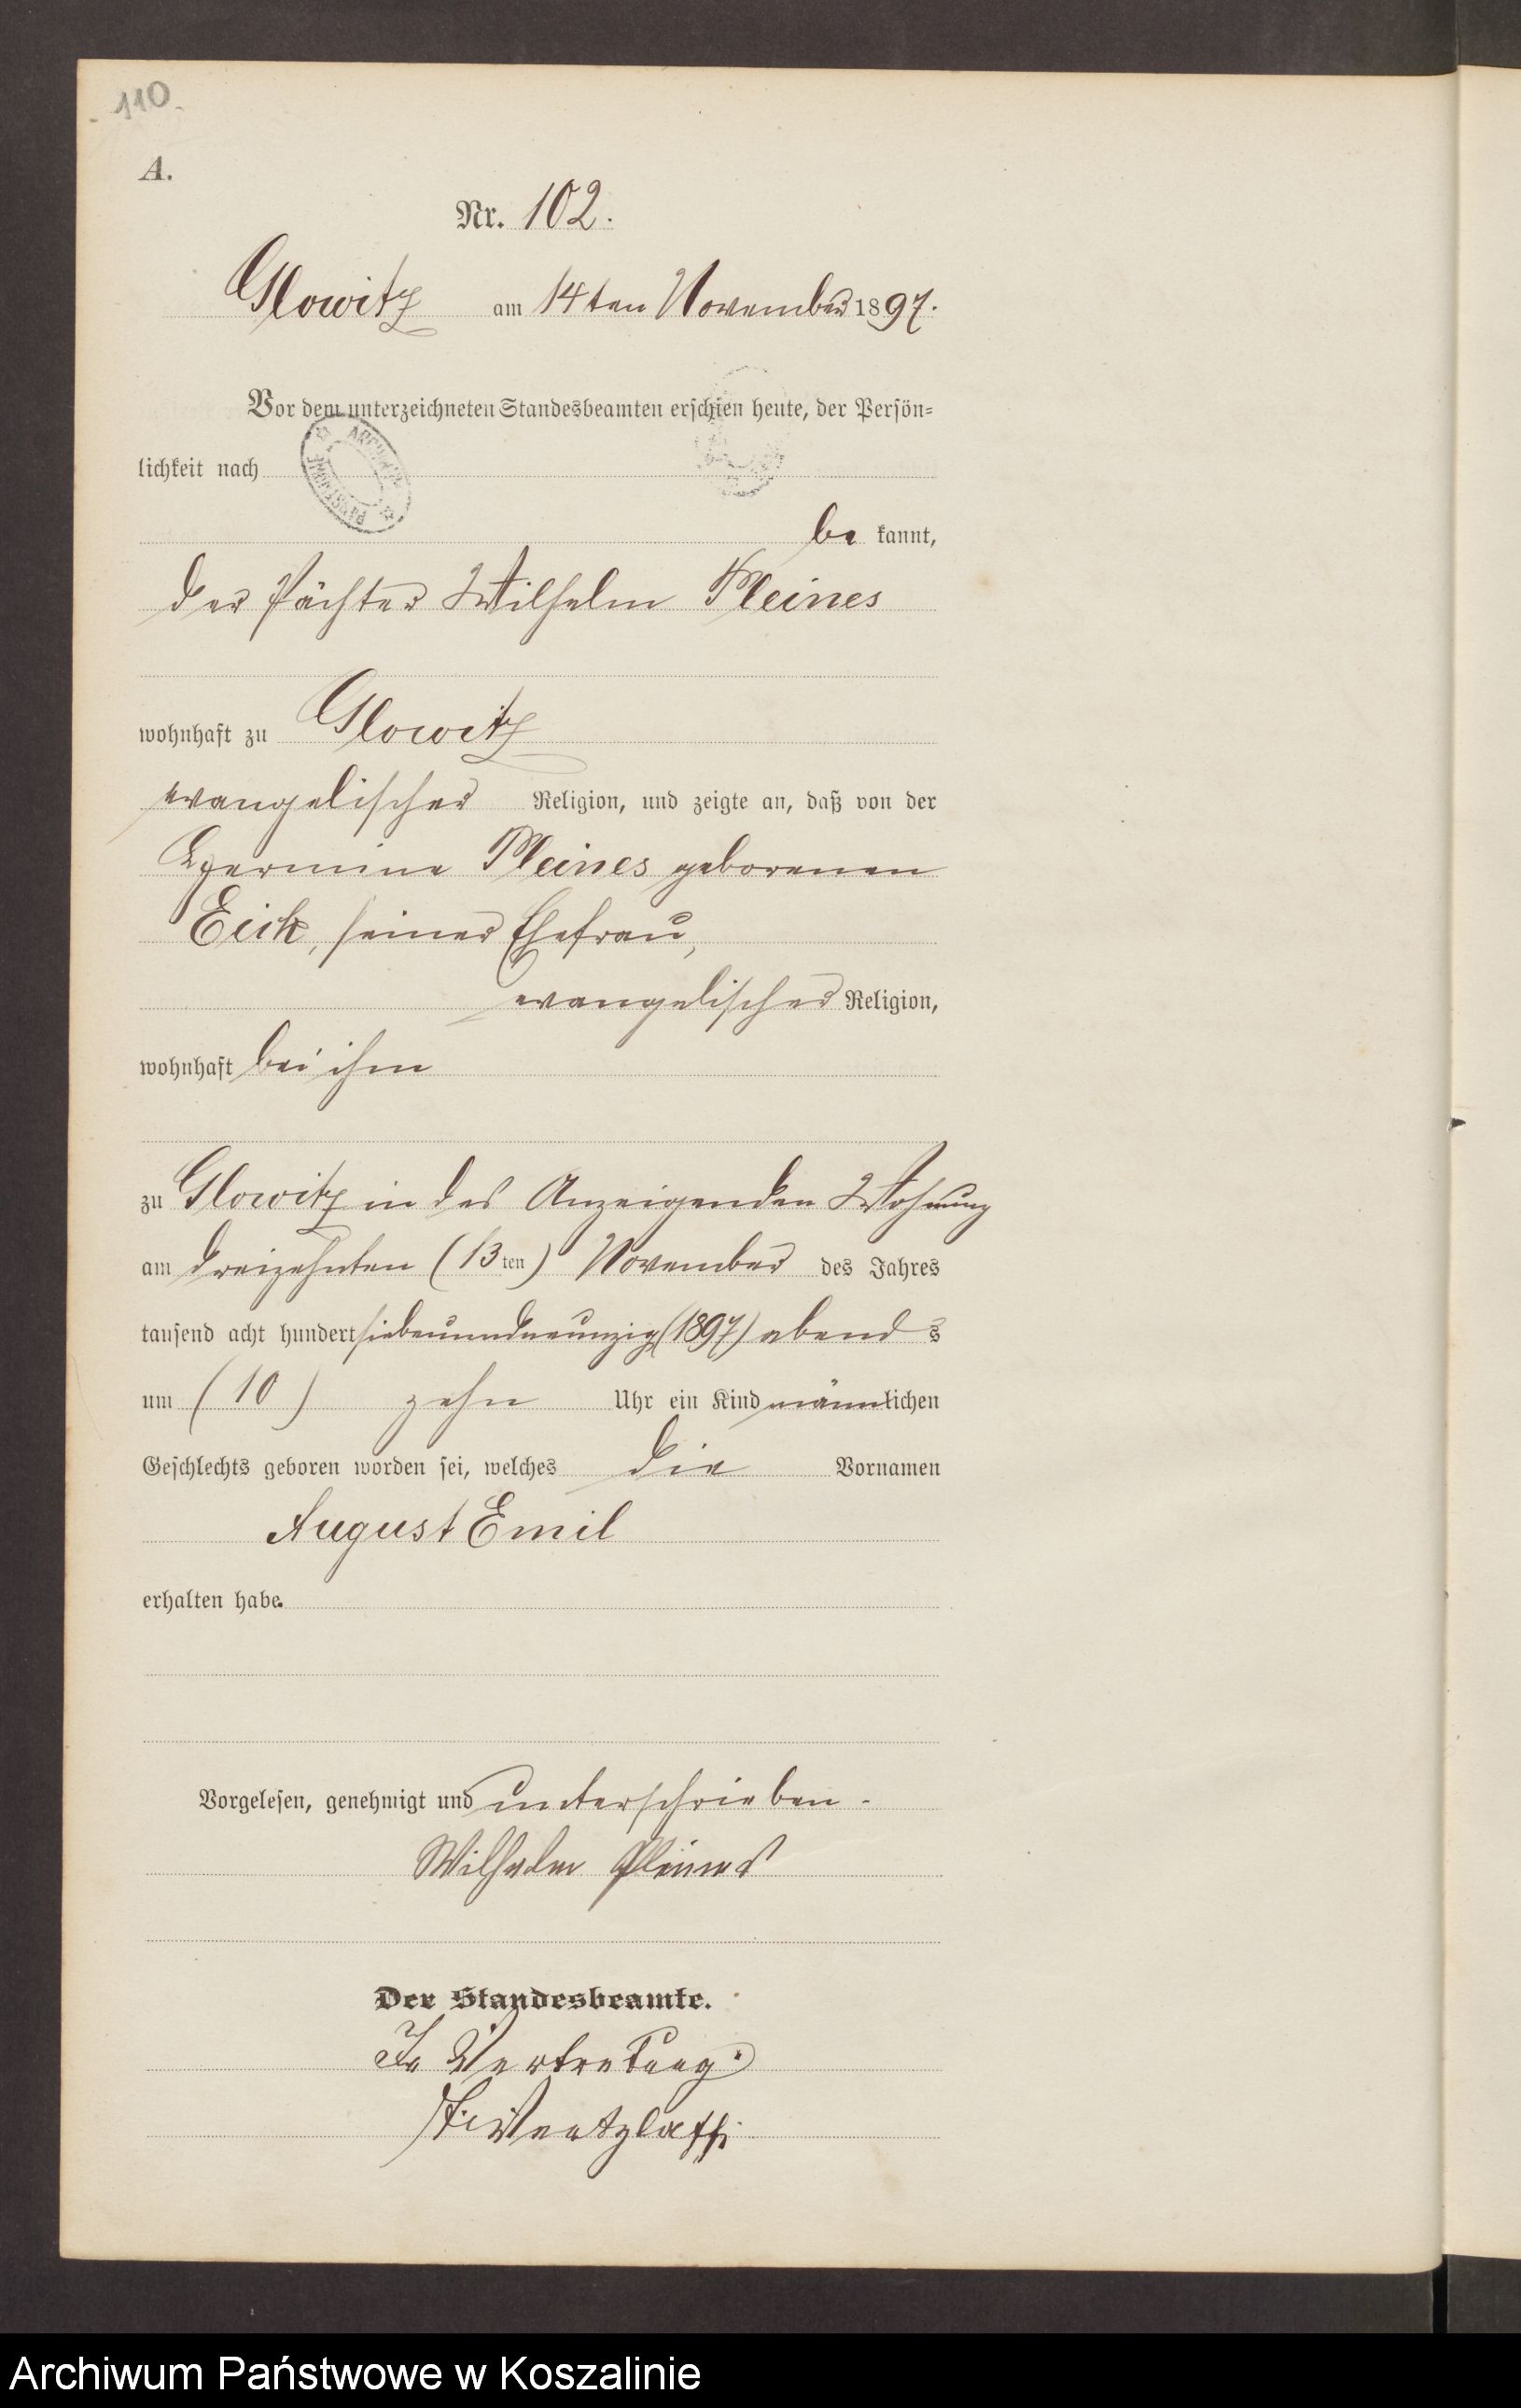 110.
A.
Nr. 102.
Glowitz am 14ten November 1897.
Vor dem unterzeichneten Standesbeamten erschien heute, der Persön=
lichkeit nach
be kannt,
der Pächter Wilhelm Pleines
wohnhaft zu Glowitz
evangelischer Religion, und zeigte an, daß von der
Hermine Pleines geborenen
Eick, seiner Ehefrau,
evangelischer Religion,
wohnhaft bei ihm
zu Glowitz in des Anzeigenden Wohnung
am dreizehnten (13ten) November des Jahres
tausend acht hundert siebenundneunzig (1897) abends
um (10) zehn Uhr ein Kind männlichen
Geschlechts geboren worden sei, welches die Vornamen
August Emil
erhalten habe.
Vorgelesen, genehmigt und unterschrieben.
Wilhelm Pleines
Der Standesbeamte.
In Vertretung:
Archiwum Państwowe w Koszalinie